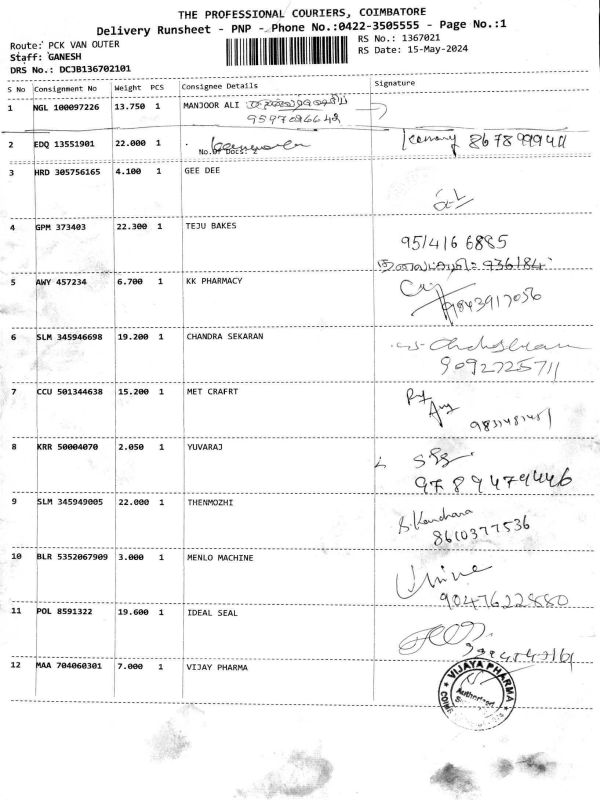 THE PROFESSIONAL COURIERS, COIMBATORE
Delivery Runsheet - PNP - Phone No.:0422-3505555 - Page No.:1
Route: PCK VAN OUTER
RS No.: 1367021
Staff: GANESH
RS Date: 15-May-2024
DRS No.: DCJB136702101
S No Consignment No Weight PCS Consignee Details Signature
1 NGL 100097226 13.750 1 MANJOOR ALI
9597096642
2 EDQ 13551901 22.000 1
No.Of Docs: 2
3 HRD 305756165 4.100 1 GEE DEE
4 GPM 373403 22.300 1 TEJU BAKES
9514166885
5 AWY 457234 6.700 1 KK PHARMACY
9843917056
6 SLM 345946698 19.200 1 CHANDRA SEKARAN
9092725711
7 CCU 501344638 15.200 1 MET CRAFRT
8 KRR 50004070 2.050 1 YUVARAJ
9789479446
9 SLM 345949005 22.000 1 THENMOZHI
8610377536
10 BLR 5352067909 3.000 1 MENLO MACHINE
9047622880
11 POL 8591322 19.600 1 IDEAL SEAL
12 MAA 704060301 7.000 1 VIJAY PHARMA
VIJAYA PHARMA